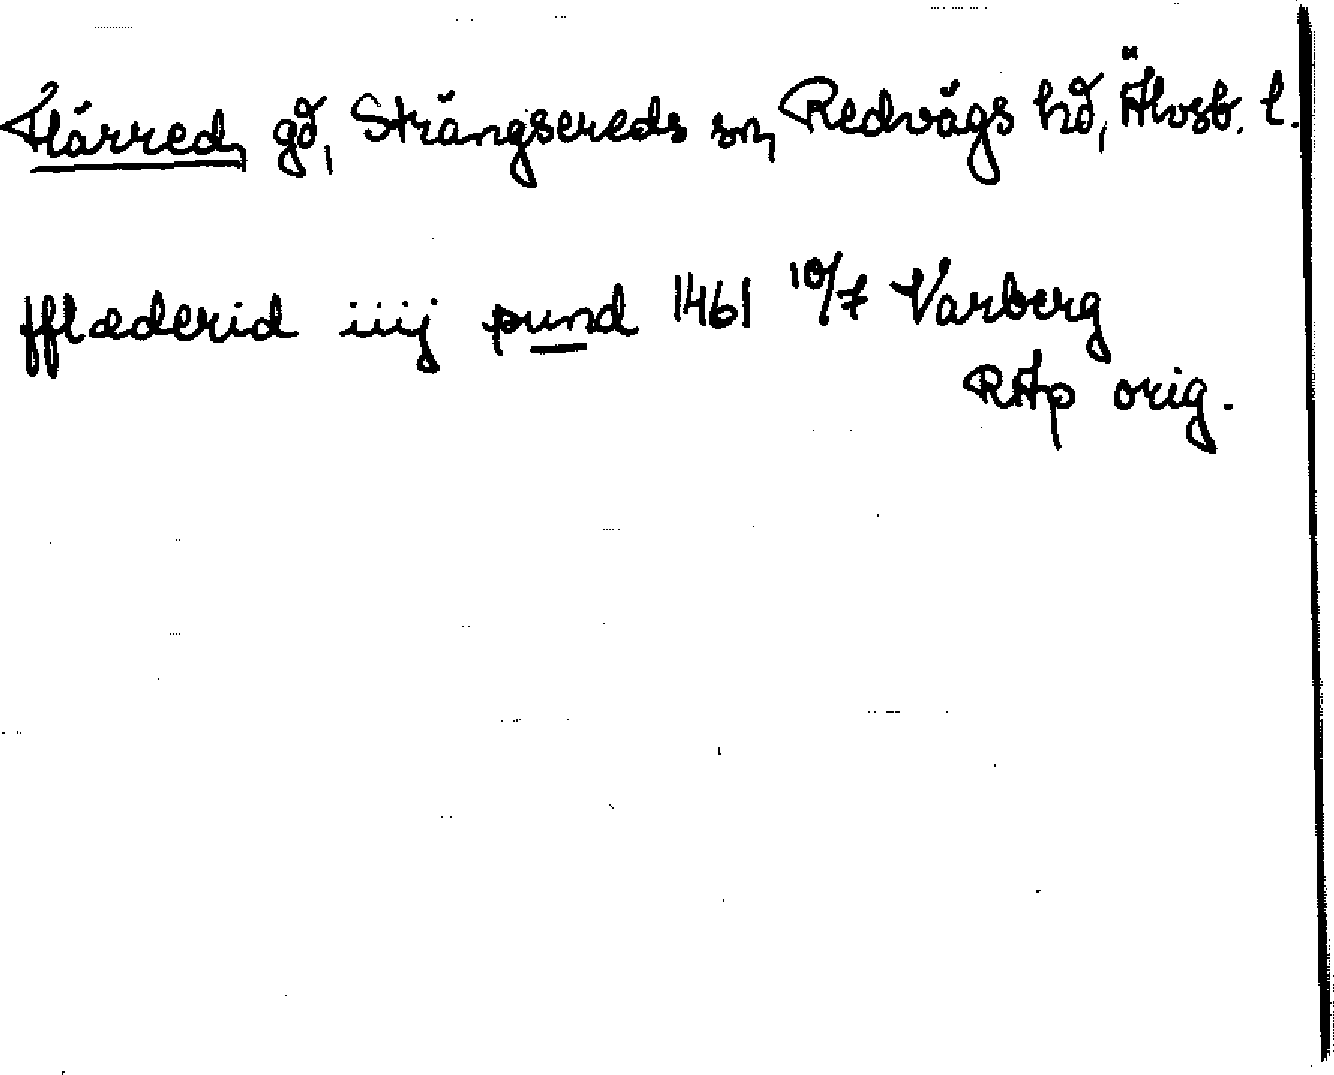 Flärred, gd, Strängsereds sn, Redvägs hd, Älvsb. l.
fflæderid iiij pund 1461 10/7 Varberg
RAp orig.